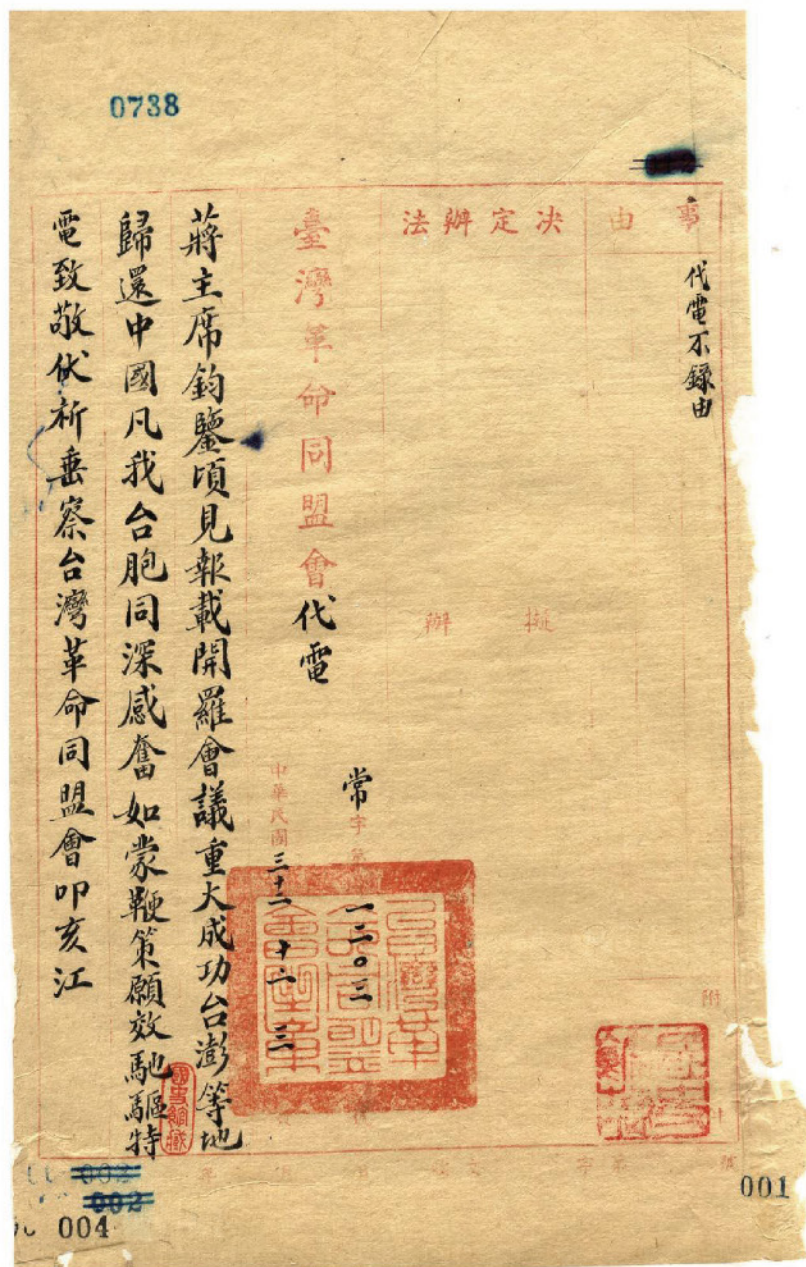 0738
事由
代電不錄由
決定辦法
擬辦
附
臺灣革命同盟會代電
常字第一二〇三
中華民國三十二 十二 三
蔣主席鈞鑒頃見報載開羅會議重大成功台澎等地
歸還中國凡我台胞同深感奮如蒙鞭策願效馳驅特
電致敬伏祈垂察台灣革命同盟會叩亥江
國史館藏
002
002
004
001